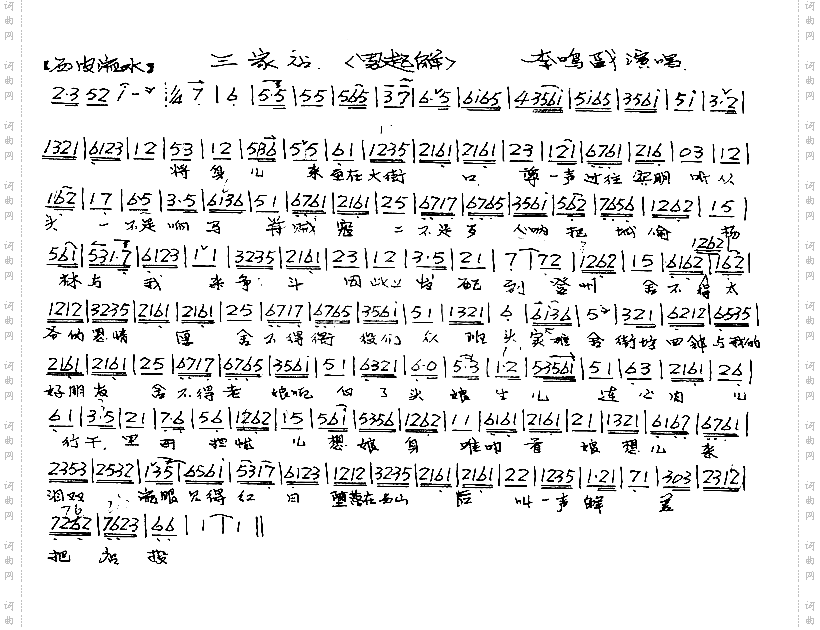 【西皮流水】 三家店 〈男起解〉 李鸣盛演唱
2·3 52 i - ˇ 1/4 7 | 6 | 5·5 | 55 | 565 | 37 | 6·5 | 6i65 | 4·356i | 5i65 | 356i | 5i | 3·2 |
1321 | 6123 | 12 | 53 | 12 | 536 | 5ˇ5 | 61 | 1235 | 2161 | 2161 | 23 | 121 | 6761 | 216 | 03 | 12 |
将身儿 来至在大街 口 尊一声过往宾朋听从
162 | 17 | 65 | 3·5 | 6136 | 51 | 6761 | 2161 | 25 | 6717 | 6765 | 3561 | 562 | 7656 | 1262 | 15 |
头 一不是响马 并贼寇 二不是歹人 把城偷 杨
1262
561 | 531·7 | 6123 | 1ˇ1 | 3235 | 2161 | 23 | 12 | 3·5 | 21 | 7 | 72 | 1262 | 15 | 6162 | 162 |
林与我 来争斗 因此上发配到登州 舍不得太
1212 | 3235 | 2161 | 2161 | 25 | 6717 | 6765 | 3561 | 51 | 1321 | 6 | 6136 | 5ˇ | 321 | 6212 | 6535 |
爷的恩情厚 舍不得衙役们众班头 实难舍街坊四邻与我的
2161 | 2161 | 25 | 6717 | 6765 | 3561 | 51 | 6321 | 6·0 | 5·3 | 1·2 | 53561 | 51 | 63 | 2161 | 26 |
好朋友 舍不得老娘 白了头 娘生儿 连心肉 儿
61 | 3·5 | 21 | 76 | 56 | 1262 | 15 | 561 | 5356 | 1262 | 11 | 6161 | 2161 | 21 | 1321 | 6167 | 6761 |
行千里 母担忧 儿想娘身难叩首 娘想儿来
2353 | 2532 | 135 | 6561 | 5317 | 6123 | 1212 | 3235 | 2161 | 2161 | 22 | 1235 | 1·21 | 71 | 303 | 2312 |
泪双流 眼见得红日 堕落在西山后 叫一声解差
76
7262 | 7623 | 66 | 1 | 1 ||
把店投
词曲网